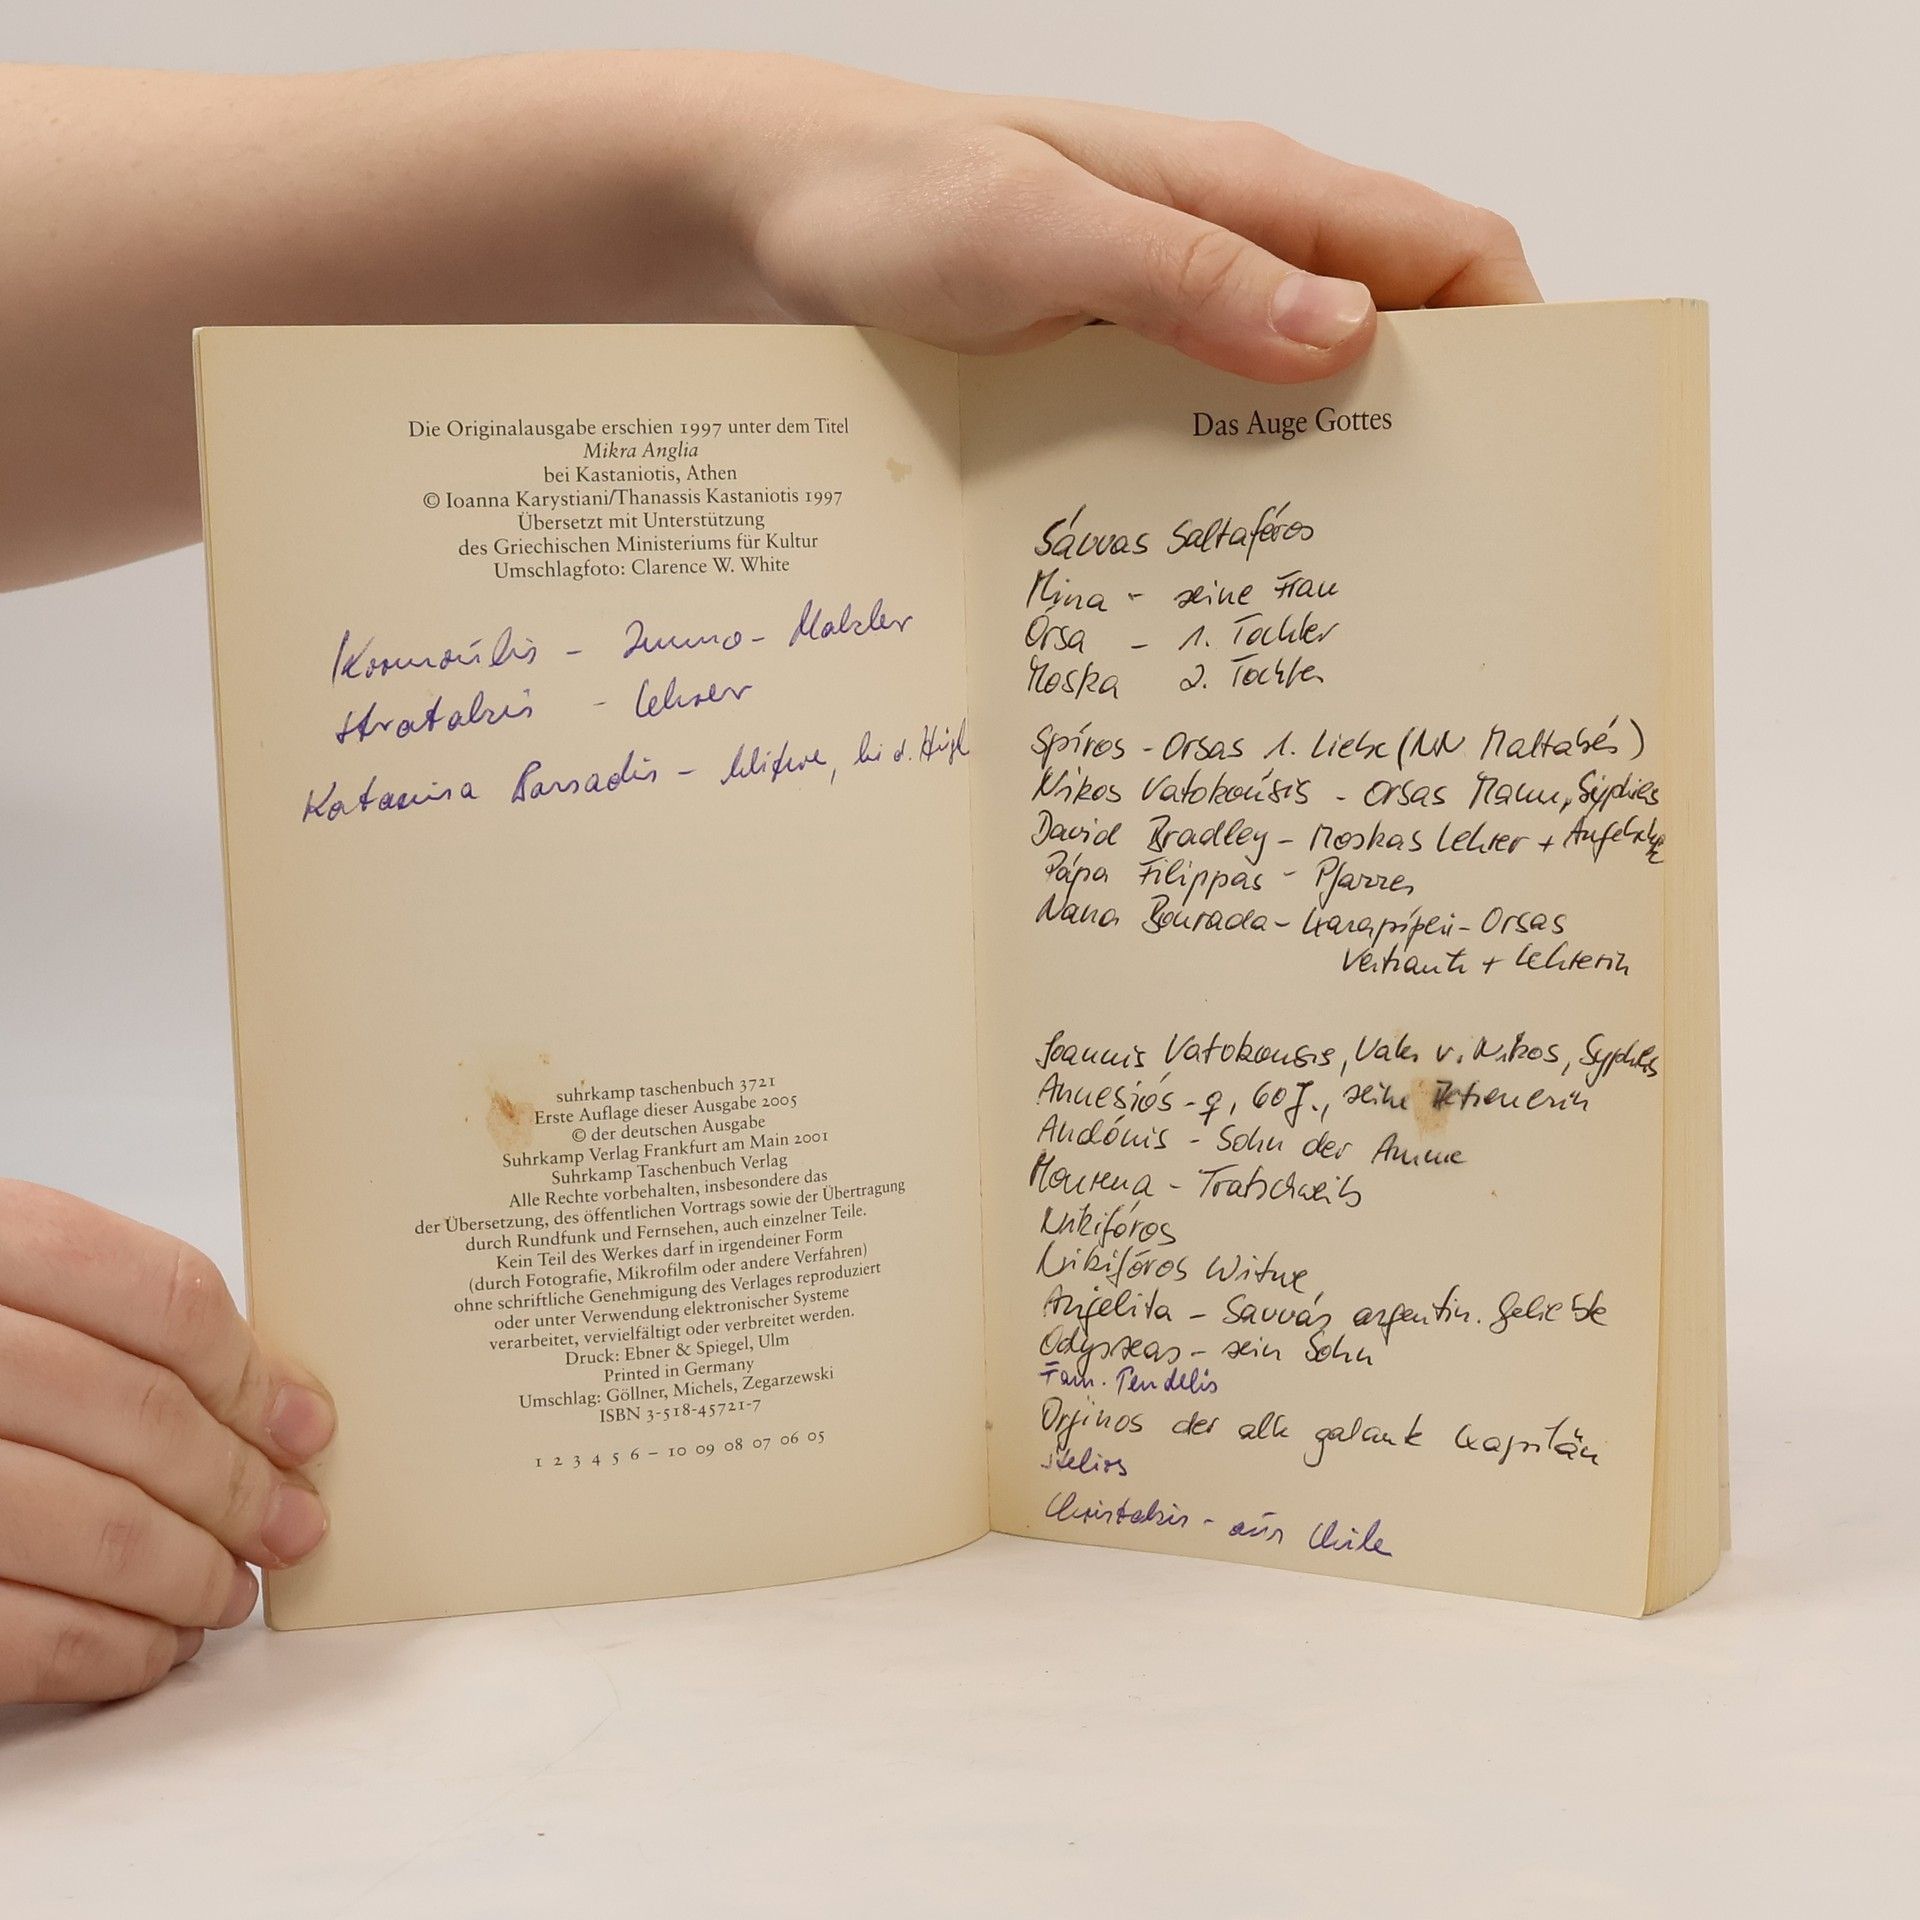 Die Originalausgabe erschien 1997 unter dem Titel
Mikra Anglia
bei Kastaniotis, Athen
© Ioanna Karystiani/Thanassis Kastaniotis 1997
Übersetzt mit Unterstützung
des Griechischen Ministeriums für Kultur
Umschlagfoto: Clarence W. White
- Immo-Makler
Stratakis - Lehrer
Katarina - Witwe, bei d. Hügl
suhrkamp taschenbuch 3721
Erste Auflage dieser Ausgabe 2005
© der deutschen Ausgabe
Suhrkamp Verlag Frankfurt am Main 2001
Suhrkamp Taschenbuch Verlag
Alle Rechte vorbehalten, insbesondere das
der Übersetzung, des öffentlichen Vortrags sowie der Übertragung
durch Rundfunk und Fernsehen, auch einzelner Teile.
Kein Teil des Werkes darf in irgendeiner Form
(durch Fotografie, Mikrofilm oder andere Verfahren)
ohne schriftliche Genehmigung des Verlages reproduziert
oder unter Verwendung elektronischer Systeme
verarbeitet, vervielfältigt oder verbreitet werden.
Druck: Ebner & Spiegel, Ulm
Printed in Germany
Umschlag: Göllner, Michels, Zegarzewski
ISBN 3-518-45721-7
1 2 3 4 5 6 – 10 09 08 07 06 05
Das Auge Gottes
Sávvas Saltaféros
Mina - seine Frau
Órsa - 1. Tochter
Moska 2. Tochter
Spíros - Orsas 1. Liebe (NN Maltabés)
Nikos Vatokoúsis - Orsas Mann, Syphilis
David Bradley - Moskas Lehrer +
Pápa Filíppas - Pfarrer
Nana Bourada - Karapíperi - Orsas
Vertraute + Lehrerin
Joannis Vatokousis, Vater v. Nikos, Syphilis
Annesiós - ♀, 60 J., seine Betreuerin
Andónis - Sohn der Amme
Mourena - Tratschweib
Nikifóros
Nikifóros Witwe
Anjelita - Savvás argentin. Geliebte
Odysseas - sein Sohn
Fam. Tendelis
Orjinos der alte galante Kapitän
Stelios
Christakis - aus Chile